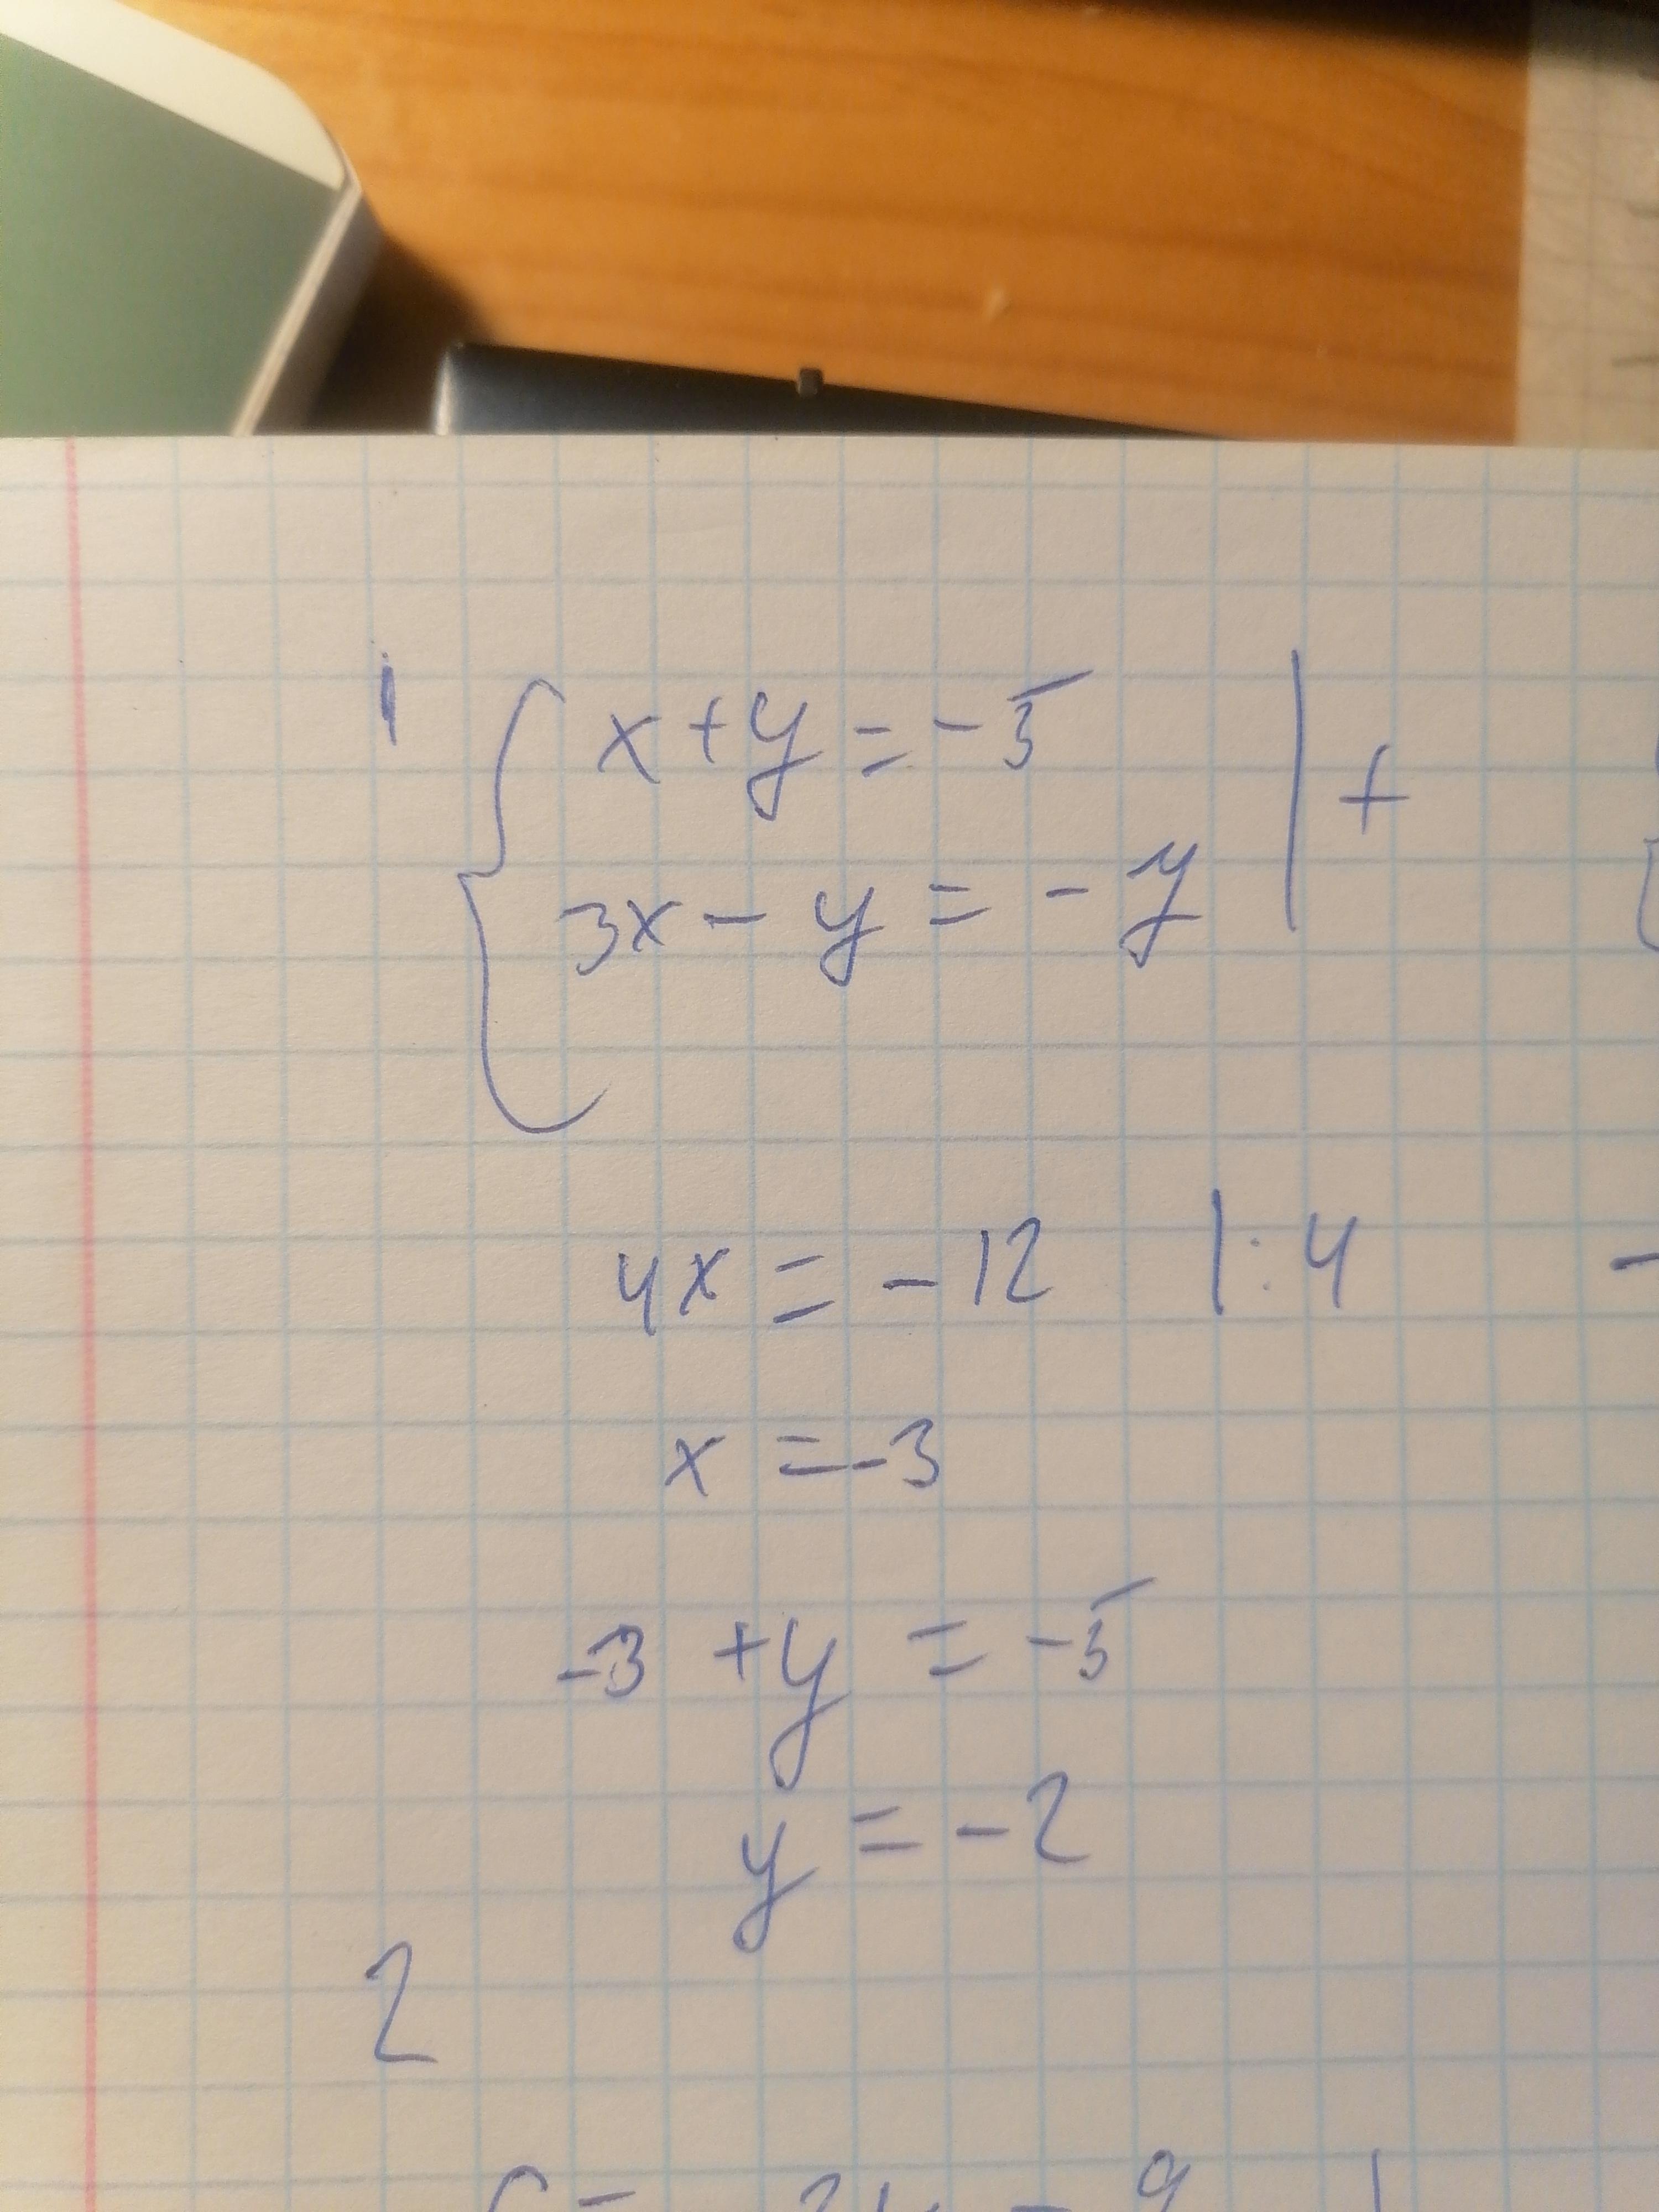 1 { x + y = -5 | +
3x - y = -7
4x = -12 | : 4
x = -3
-3 + y = -5
y = -2
2